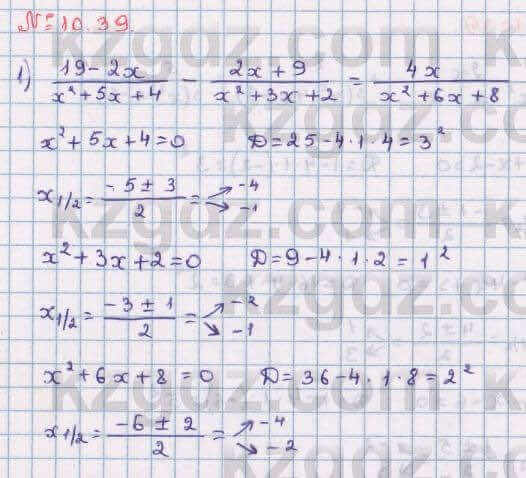 №10.39.
1) (19-2x)/(x²+5x+4) - (2x+9)/(x²+3x+2) = 4x/(x²+6x+8)
x²+5x+4=0 D=25-4·1·4=3²
x1/2=(-5±3)/2= -4 -1
x²+3x+2=0 D=9-4·1·2=1²
x1/2=(-3±1)/2= -2 -1
x²+6x+8=0 D=36-4·1·8=2²
x1/2=(-6±2)/2= -4 -2
kzgdz.com